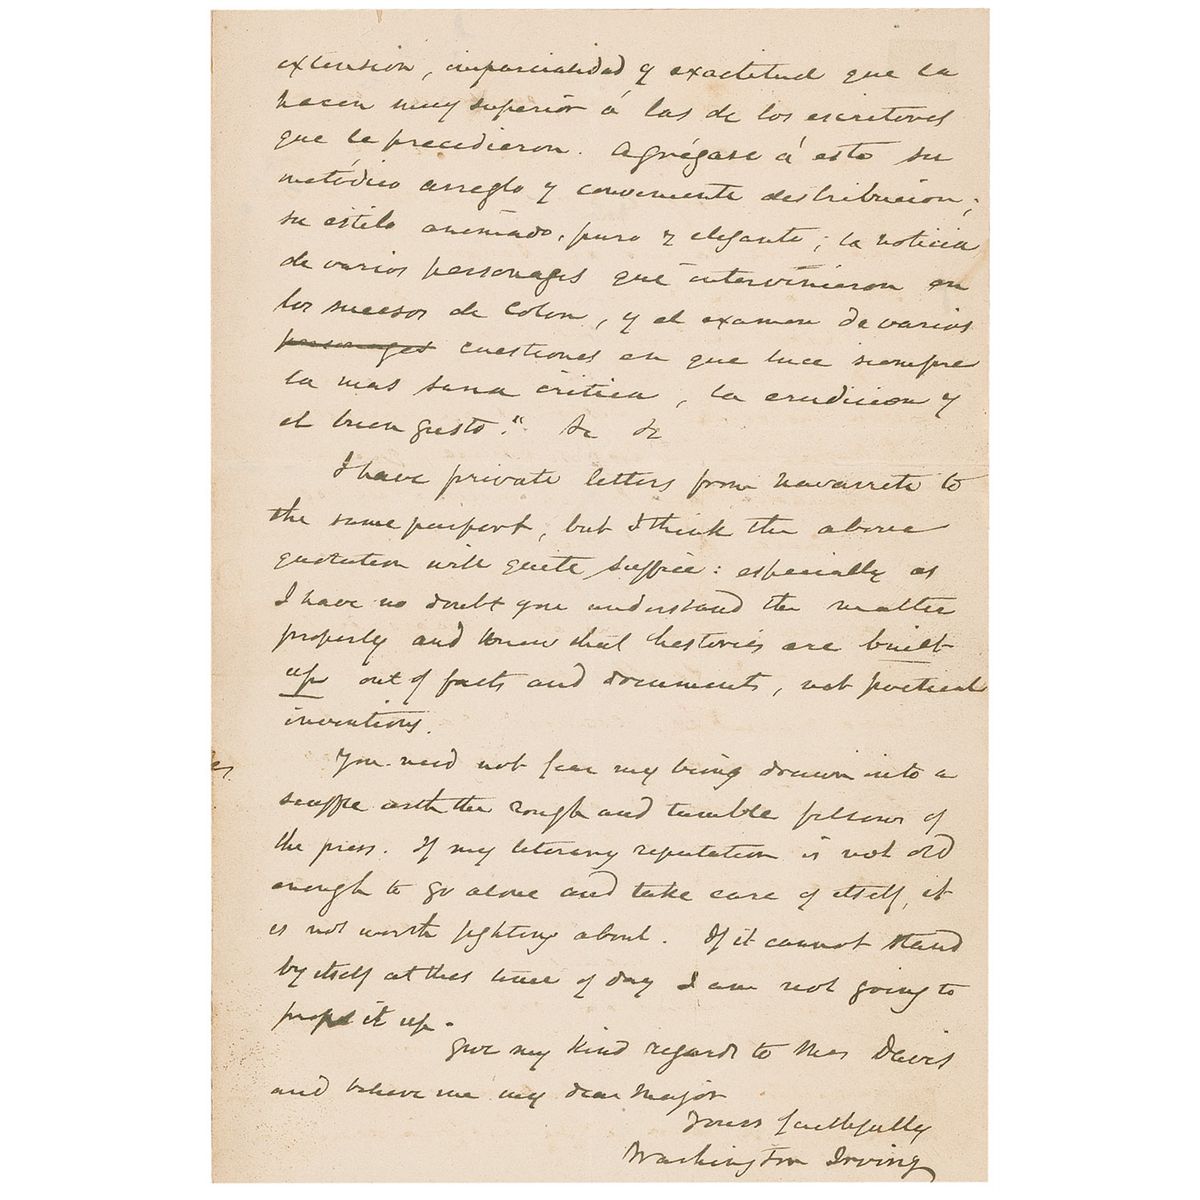 extension, imparcialidad y exactitud que la
hacen muy superior á las de los escritores
que le precedieron. Agrégase á esto su
metódico arreglo y conveniente destribucion;
su estilo animado, puro y elegante; la noticia
de varios personages que intervinieron en
los sucesos de Colon, y el examen de varios
personages cuestiones en que luce siempre
la mas sana critica, la erudicion y
el buen gusto." &c &c
I have private letters from Navarrete to
the same purport, but I think the above
quotation will quite suffice: especially as
I have no doubt you understand the matter
properly and know that histories are built
up out of facts and documents, not poetical
inventions.
You need not fear my being drawn into a
scuffle with the rough and tumble fellows of
the press. If my literary reputation is not old
enough to go alone and take care of itself, it
is not worth fighting about. If it cannot stand
by itself at this time of day I am not going to
prop it up.
Give my kind regards to Mrs Davis
and believe me my dear Major
Yours faithfully
Washington Irving